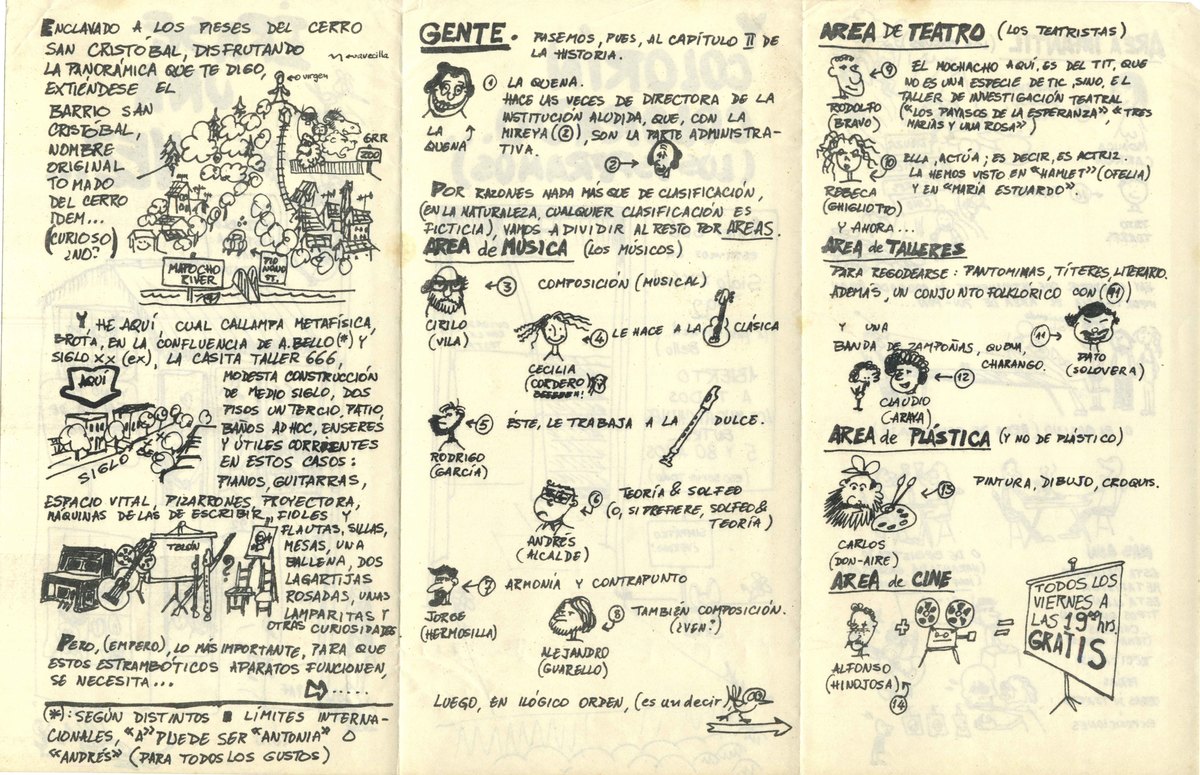 ENCLAVADO A LOS PIESES DEL CERRO
SAN CRISTOBAL, DISFRUTANDO
LA PANORÁMICA QUE TE DIGO,
EXTIÉNDESE EL
BARRIO SAN
CRISTOBAL,
NOMBRE
ORIGINAL
TOMADO
DEL CERRO
IDEM...
(CURIOSO)
¿NO?
navecilla
virgen
GRR
ZOO
MAPOCHO
RIVER
PIO
NONO
ST.
Y, HE AQUÍ, CUAL CALLAMPA METAFÍSICA,
BROTA, EN LA CONFLUENCIA DE A. BELLO (*) Y
SIGLO XX (EX), LA CASITA TALLER 666,
AQUÍ
SIGLO
MODESTA CONSTRUCCIÓN
DE MEDIO SIGLO, DOS
PISOS UN TERCIO, PATIO,
BAÑOS AD HOC, ENSERES
Y ÚTILES CORRIENTES
EN ESTOS CASOS:
PIANOS, GUITARRAS,
ESPACIO VITAL, PIZARRONES, PROYECTORA,
MÁQUINAS DE LAS DE ESCRIBIR, FIOLES Y
FLAUTAS, SILLAS,
MESAS, UNA
BALLENA, DOS
LAGARTIJAS
ROSADAS, UNAS
LAMPARITAS Y
OTRAS CURIOSIDADES
TELÓN
?
PERO, (EMPERO), LO MÁS IMPORTANTE, PARA QUE
ESTOS ESTRAMBÓTICOS APARATOS FUNCIONEN,
SE NECESITA...
......
(*): SEGÚN DISTINTOS LÍMITES INTERNA-
CIONALES, "A" PUEDE SER "ANTONIA" O
"ANDRÉS" (PARA TODOS LOS GUSTOS)
GENTE. PASEMOS, PUES, AL CAPÍTULO II DE
LA HISTORIA.
LA
QUENA
1 LA QUENA.
HACE LAS VECES DE DIRECTORA DE LA
INSTITUCIÓN ALUDIDA, QUE, CON LA
MIREYA (2), SON LA PARTE ADMINISTRA-
TIVA.
2
POR RAZONES NADA MÁS QUE DE CLASIFICACIÓN,
(EN LA NATURALEZA, CUALQUIER CLASIFICACIÓN ES
FICTICIA), VAMOS A DIVIDIR AL RESTO POR AREAS.
AREA de MÚSICA (LOS MÚSICOS)
3 COMPOSICIÓN (MUSICAL)
CIRILO
(VILA)
4 LE HACE A LA CLÁSICA
CECILIA
(CORDERO)
5 ÉSTE, LE TRABAJA A LA DULCE.
RODRIGO
(GARCÍA)
6 TEORÍA & SOLFEO
(O, SI PREFIERE, SOLFEO &
TEORÍA)
ANDRÉS
(ALCALDE)
7 ARMONÍA Y CONTRAPUNTO
JORGE
(HERMOSILLA)
8 TAMBIÉN COMPOSICIÓN.
¿VEN?
ALEJANDRO
(GUARELLO)
LUEGO, EN ILÓGICO ORDEN, (es un decir)
AREA DE TEATRO (LOS TEATRISTAS)
9 EL MOCHACHO AQUÍ, ES DEL TIT, QUE
NO ES UNA ESPECIE DE TIC, SINO, EL
TALLER DE INVESTIGACIÓN TEATRAL
("LOS PAYASOS DE LA ESPERANZA" & "TRES
MARÍAS Y UNA ROSA")
RODOLFO
(BRAVO)
10 ELLA, ACTÚA; ES DECIR, ES ACTRIZ.
LA HEMOS VISTO EN "HAMLET" (OFELIA)
Y EN "MARÍA ESTUARDO".
REBECA
(GHIGLIOTTO)
Y AHORA...
AREA de TALLERES
PARA REGODEARSE: PANTOMIMAS, TÍTERES, LITERARIO.
ADEMÁS, UN CONJUNTO FOLKLÓRICO CON (11)
11
PATO
(SOLOVERA)
Y UNA
BANDA DE ZAMPOÑAS, QUENA,
CHARANGO.
12
CLAUDIO
(ARAYA)
AREA de PLÁSTICA (Y NO DE PLÁSTICO)
13 PINTURA, DIBUJO, CROQUIS.
CARLOS
(DON-AIRE)
AREA de CINE
+ =
TODOS LOS
VIERNES A
LAS 19:00 hrs.
GRATIS
ALFONSO
(HINOJOSA)
14